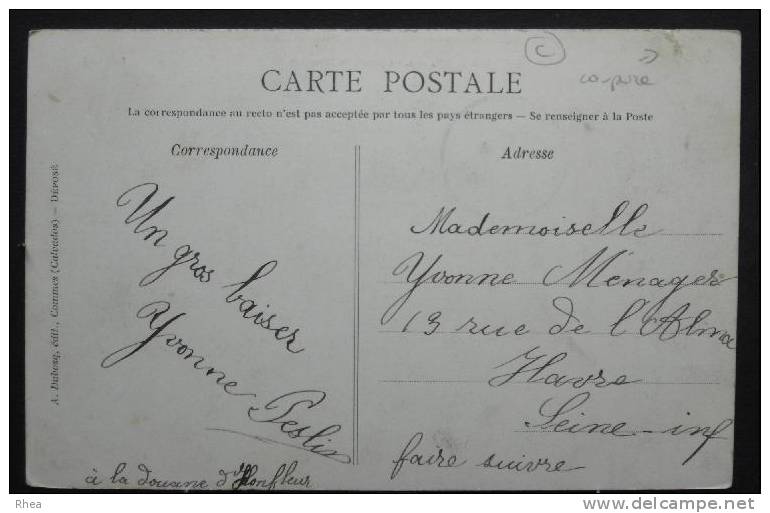 C
CARTE POSTALE
La correspondance au recto n'est pas acceptée par tous les pays étrangers — Se renseigner à la Poste
Correspondance
Un gros baiser
Yvonne Peslin
à la douane d'Honfleur
Adresse
Mademoiselle
Yvonne Ménager
19 rue de l'Alma
Havre
Seine-inf
faire suivre
A. Dubosq, édit., Commes (Calvados) — DÉPOSÉ
Rhea
http://www.delcampe.net